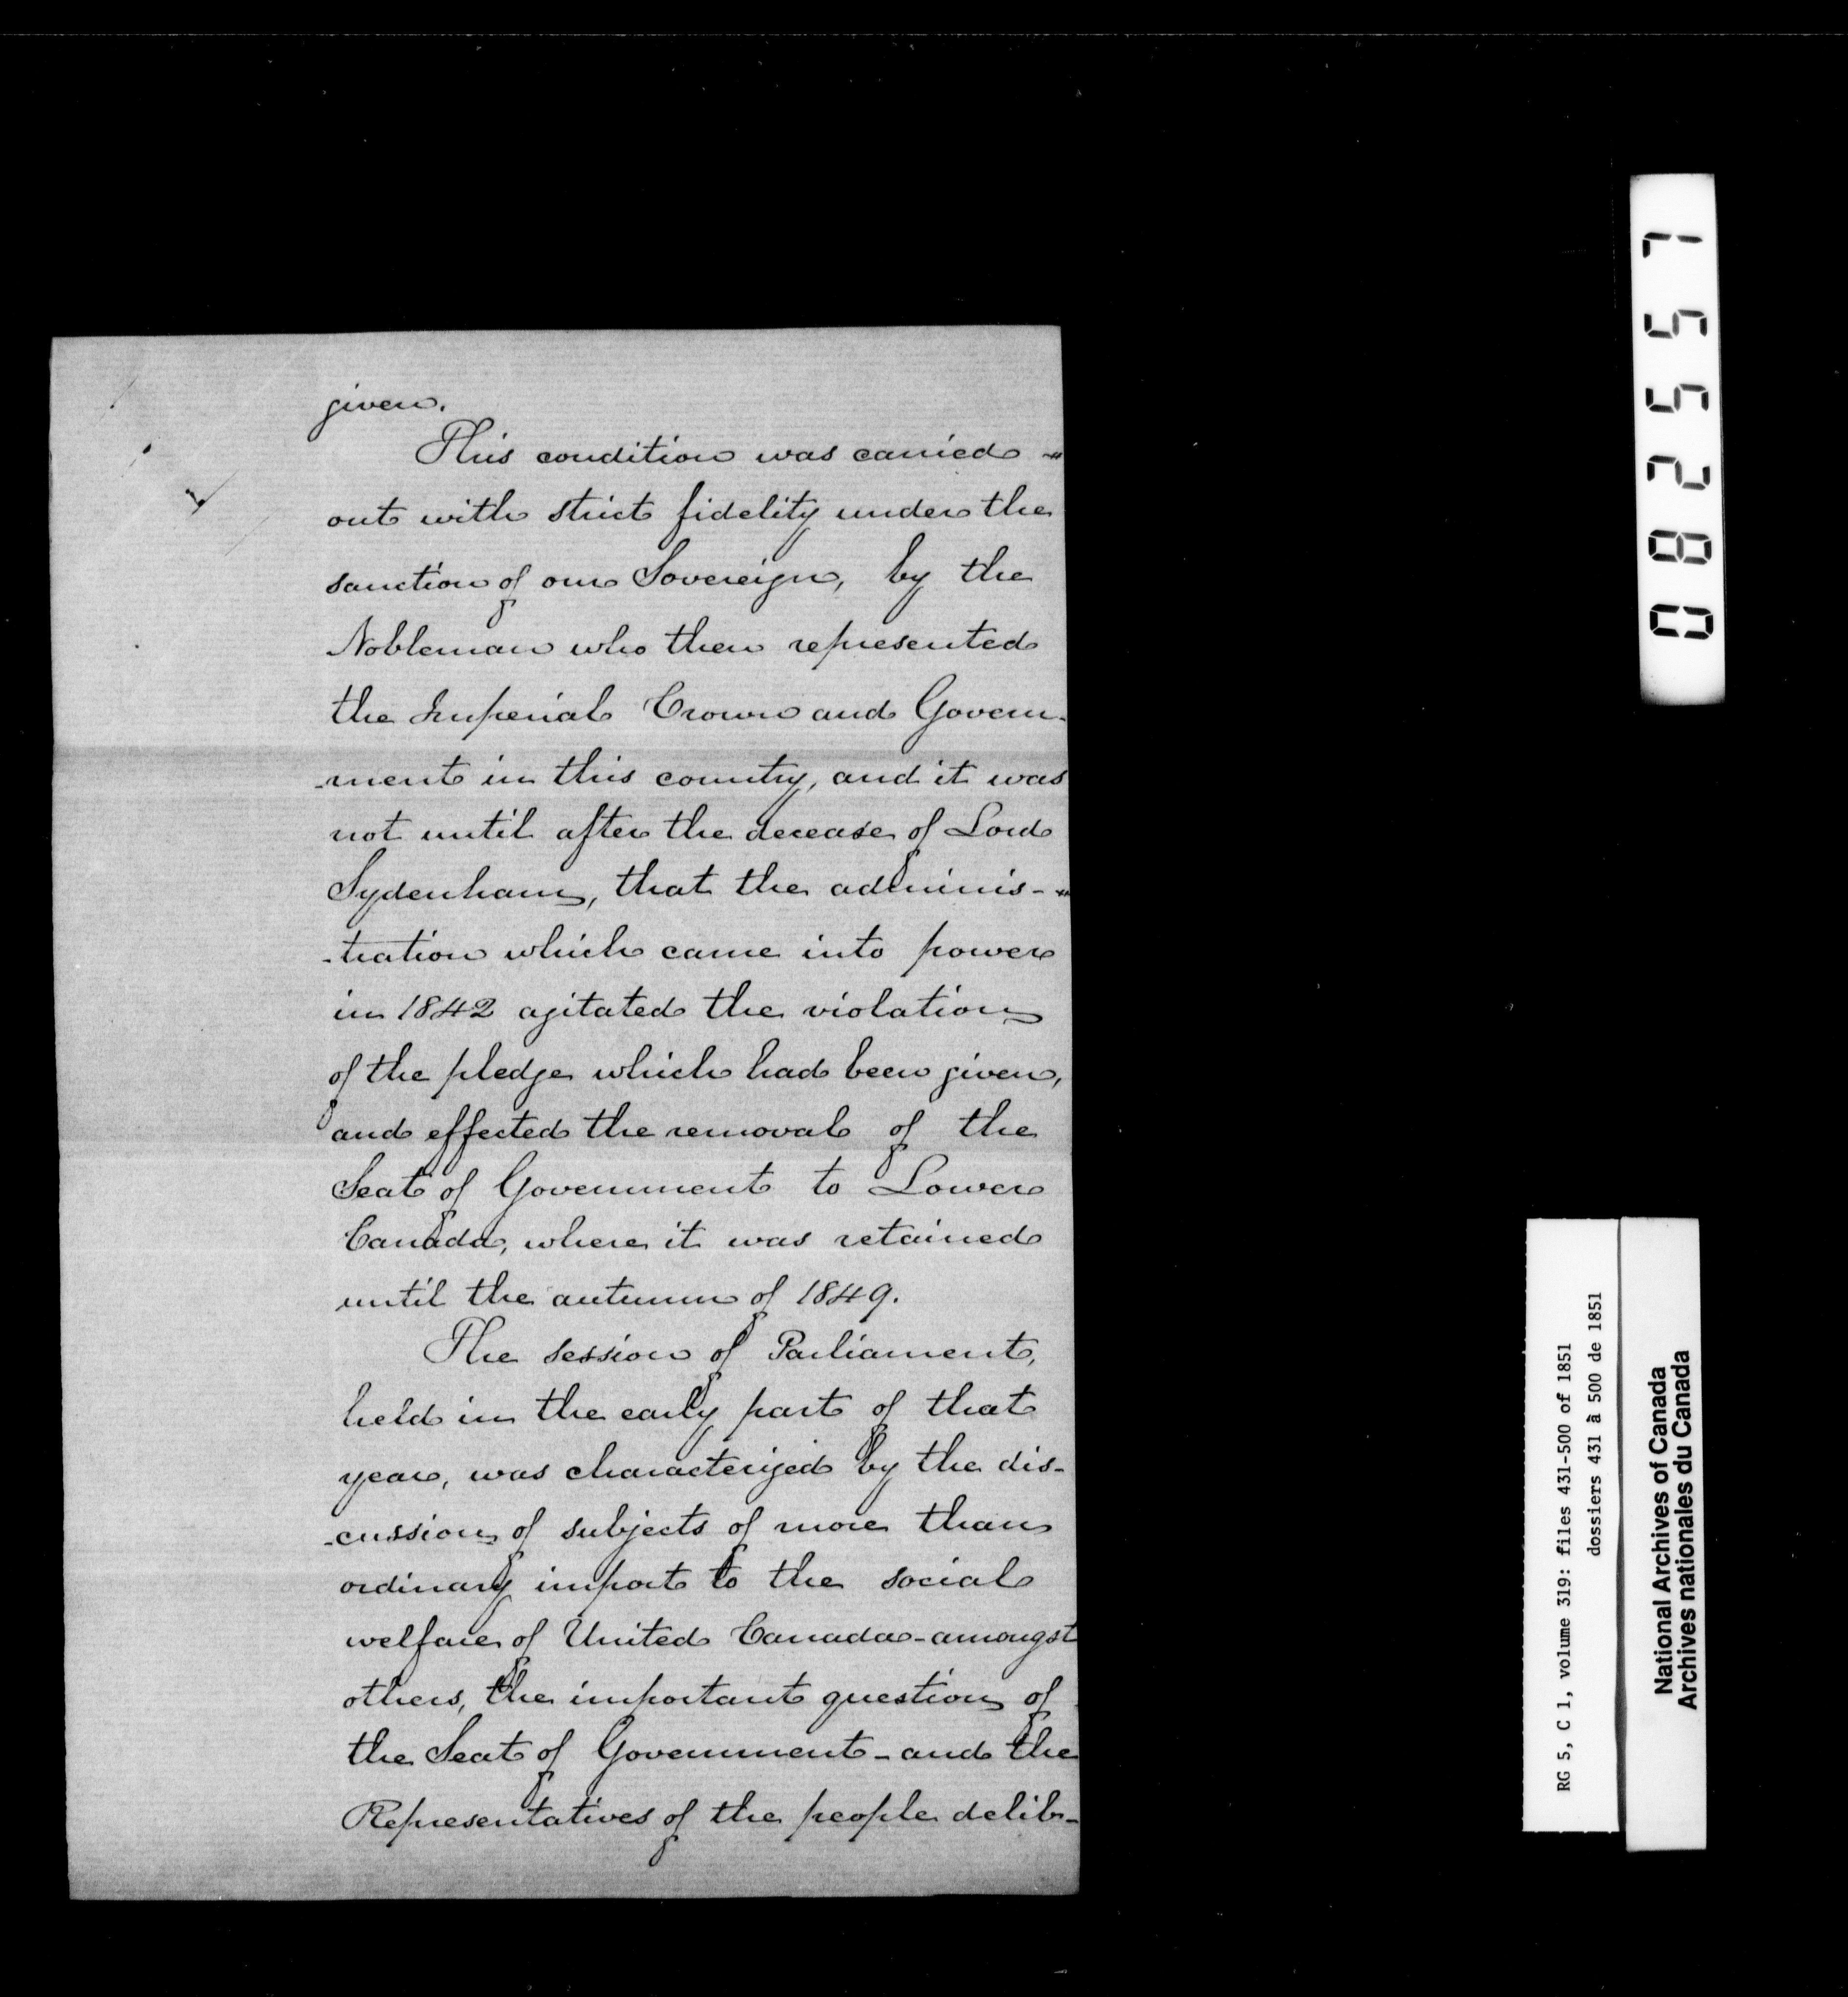 given.
This condition was carried
out with strict fidelity under the
sanction of our Sovereign, by the
Nobleman who then represented
the Imperial Crown and Govern-
-ment in this country, and it was
not until after the decease of Lord
Sydenham, that the adminis-
-tration which came into power
in 1842 agitated the violation
of the pledge which had been given,
and effected the removal of the
Seat of Government to Lower
Canada, where it was retained
until the autumn of 1849.
The session of Parliament,
held in the early part of that
year, was characterized by the dis-
-cussion of subjects of more than
ordinary import to the social
welfare of United Canada - amongst
others, the important question of
the Seat of Government - and the
Representatives of the people delib-
082557
RG 5, C 1, volume 319: files 431-500 of 1851
dossiers 431 à 500 de 1851
National Archives of Canada
Archives nationales du Canada